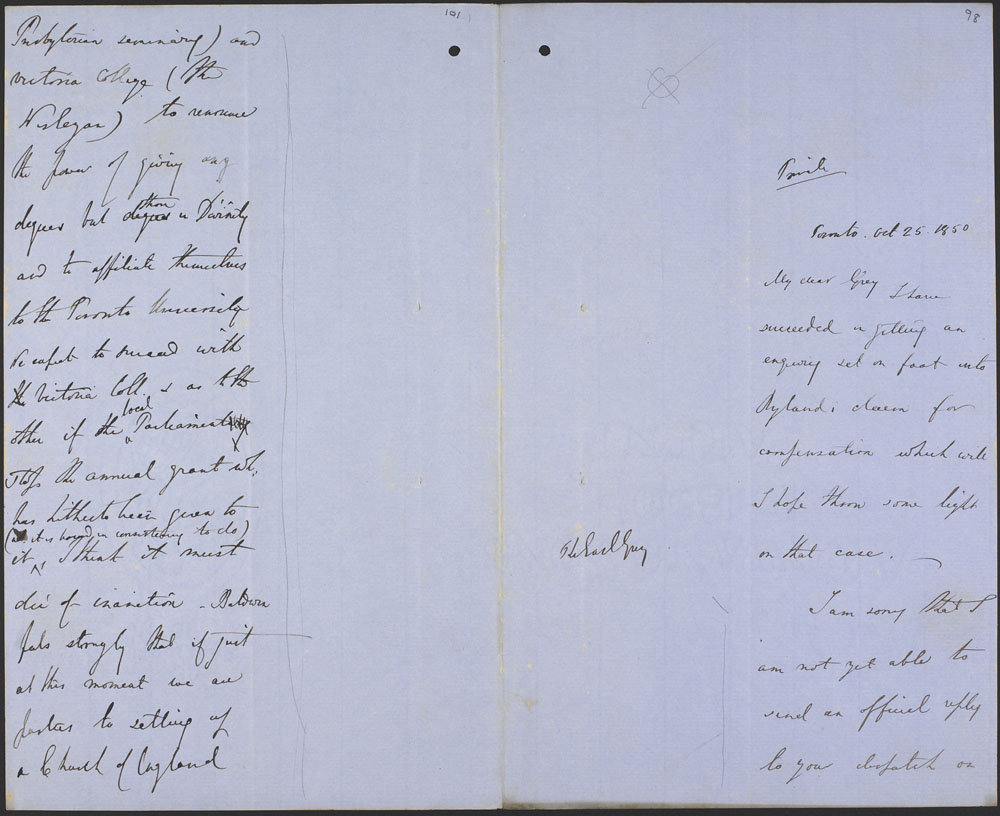 101
Presbyterian seminary) and
Victoria College (the
Wesleyan) to renounce
the power of giving any
degrees but those in Divinity
and to affiliate themselves
to the Toronto University
We expect to succeed with
the Victoria Coll. & as to the
local
other if the Parliament
stops the annual grant wh.
has hitherto been given to
(as it is bound in consistency to do)
it, I think it must
die of inanition - Baldwin
feels strongly that if just
at this moment we are
parties to setting up
a Church of England
98
Private
Toronto. Oct 25. 1850
My dear Grey I have
succeeded in getting an
enquiry set on foot into
Ryland's claim for
compensation which will
I hope throw some light
on that case. —
I am sorry that I
am not yet able to
send an official reply
to your despatch on
The Earl Grey